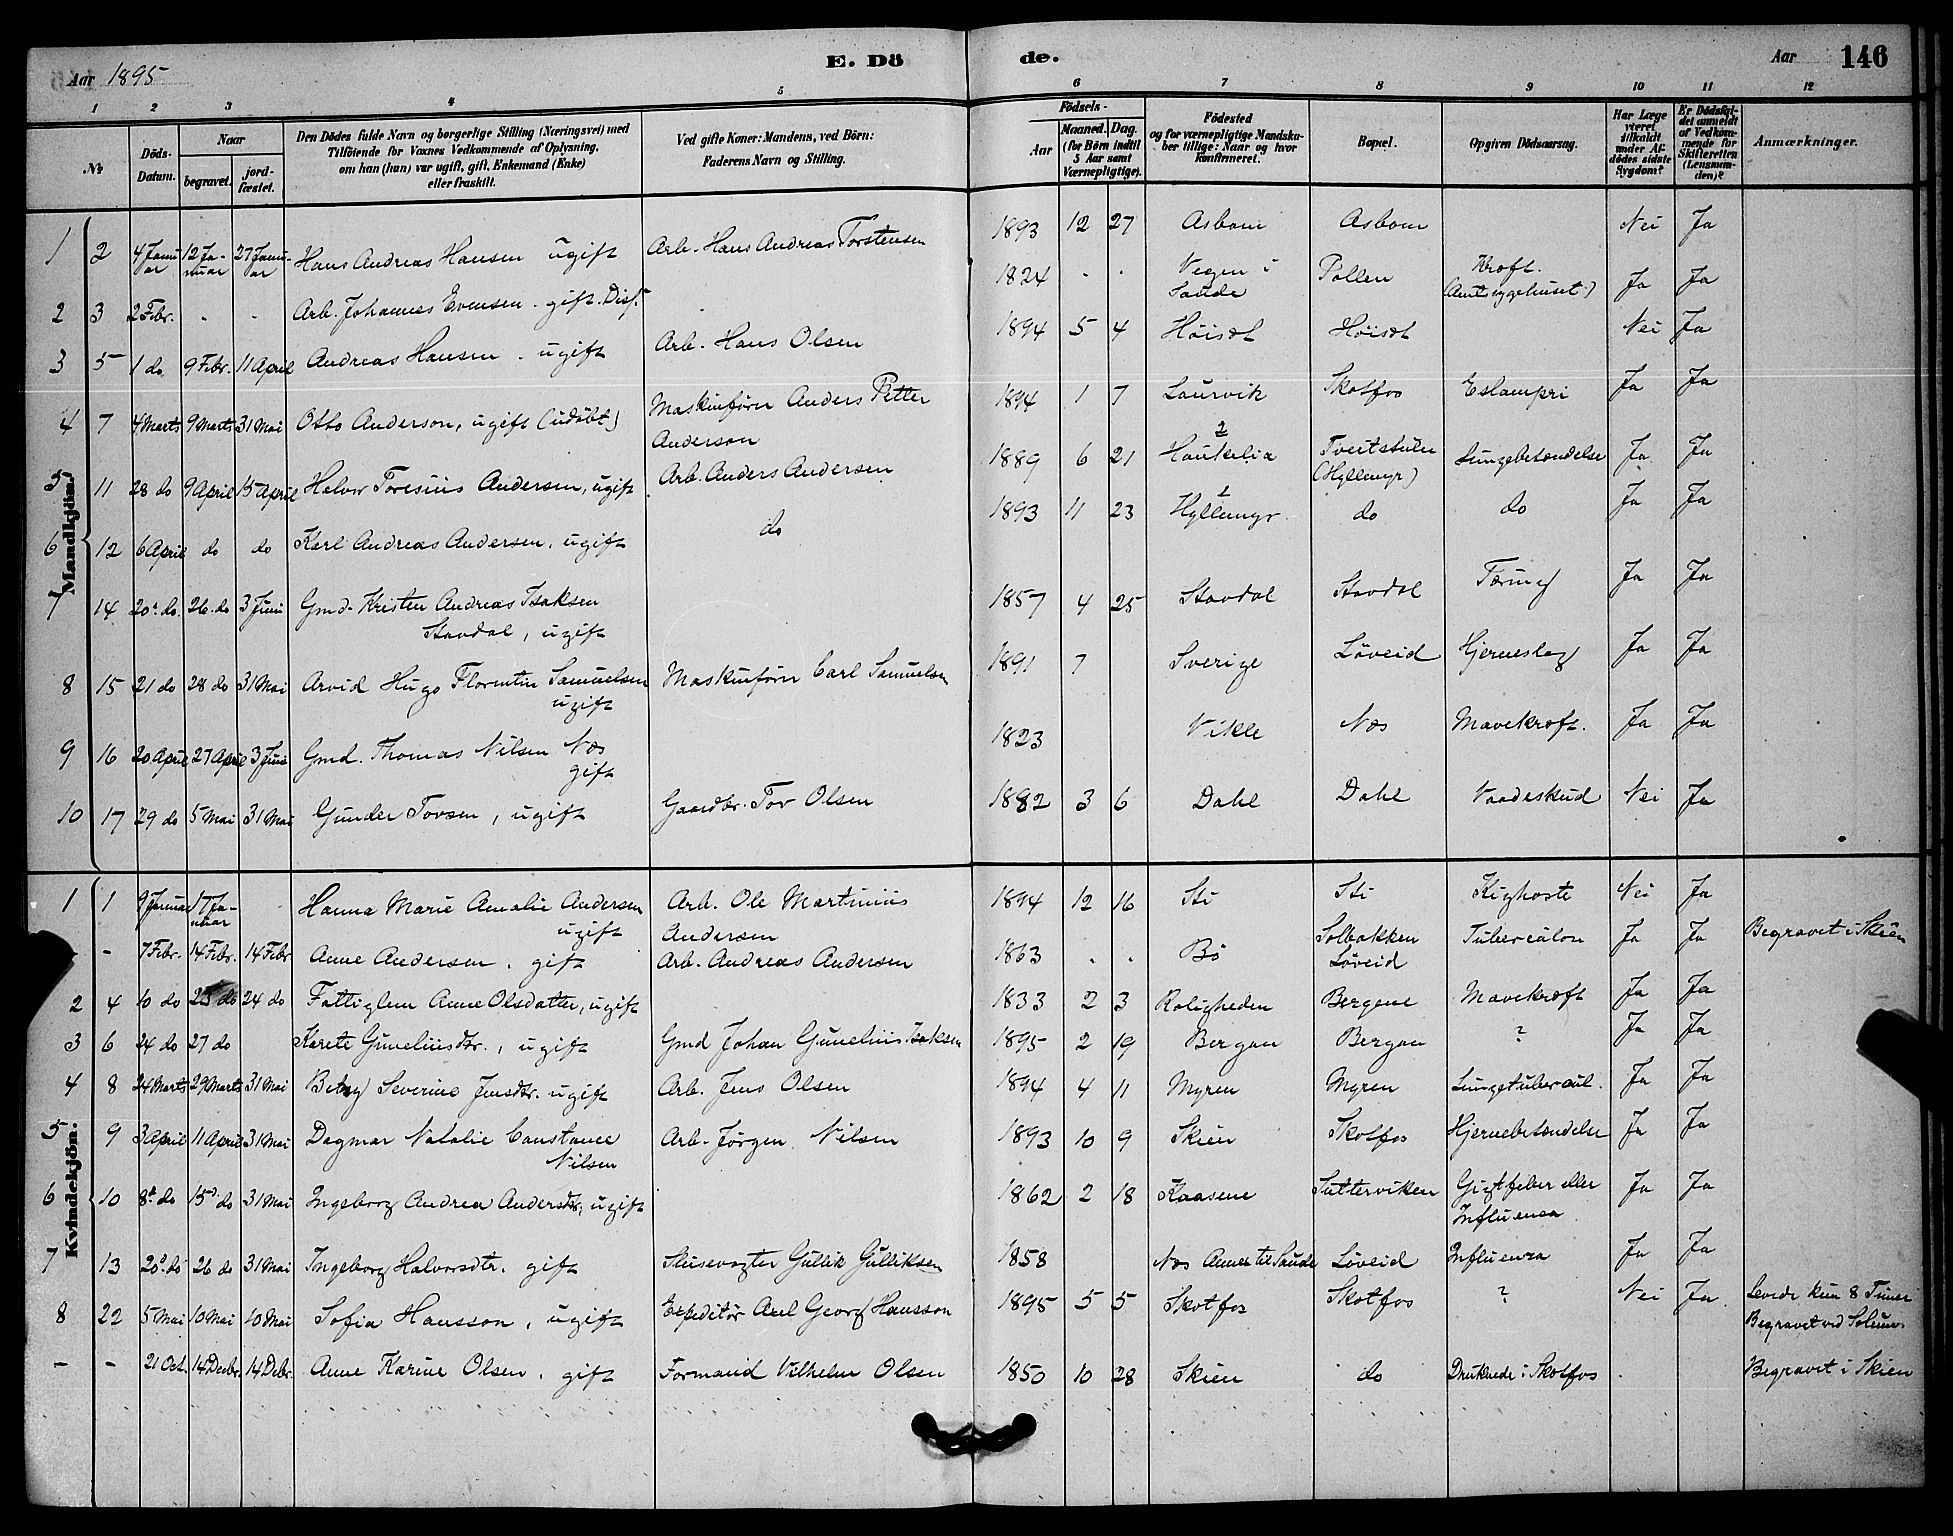 Aar 1895
E. Dö
de.
Aar
146
1 2 3 4 5 6 7 8 9 10 11 12
№
Döds-Datum.
Naar
begravet.
jord-fæstet.
Den Dödes fulde Navn og borgerlige Stilling (Næringsvei) med
Tilföiende for Voxnes Vedkommende af Oplysning,
om han (hun) var ugift, gift, Enkemand (Enke)
eller fraskilt.
Ved gifte Koner: Mandens, ved Börn:
Faderens Navn og Stilling.
Födsels-
Aar
Maaned. Dag.
(for Börn indtil
5 Aar samt
Værnepligtige).
Födested
og for værnepligtige Mandska-
ber tillige: Naar og hvor
konfirmeret.
Bopæl.
Opgiven Dödsaarsag.
Har Læge
været
tilkaldt
under Af-
dödes sidste
Sygdom?
Er Dödsfal-
det anmeldt
af Vedkom-
mende for
Skifteretten
(Lensman-
den)?
Anmærkninger.
Mandkjön.
1 2 4 Januar 12 Januar 27 Januar Hans Andreas Hansen ugift Arb. Hans Andreas Torstensen 1893 12 27 Asbom Asbom Nei Ja
2 3 2 Febr. - - Arb. Johannes Evensen. gift. Diss. 1824 - - Vegen i Saude Pollen Kræft. (Amtssygehuset.) Ja Ja
3 5 1 do 9 Febr. 11 April Andreas Hansen. ugift Arb. Hans Olsen 1894 5 4 Höisæt Höisæt Nei Ja
4 7 4 Marts 9 Marts 31 Mai Otto Anderson, ugift (udöbt) Maskinförer Anders Petter Anderson 1894 1 7 Laurvik Skotfos Eslampsi Ja Ja
5 11 28 do 9 April 15 April Halvor Toresius Andersen, ugift Arb. Anders Andersen 1889 6 21 2 Haukelia Tveitstulen (Hyllemyr) Lungebetændelse Ja Ja
6 12 6 April do do Karl Andreas Andersen, ugift do 1893 11 23 1 Hyllemyr do do Ja Ja
7 14 20 do. 26. do 3 Juni Gmd. Kristen Andreas Isaksen
Stavdal, ugift 1857 4 25 Stavdal Stavdal Tæring Ja Ja
8 15 21 do 28 do 31 Mai Arvid Hugo Florentin Samuelsen
ugift Maskinförer Carl Samuelsen 1891 7 Sverige Löveid Hjerneslag Ja Ja
9 16 20 April 27 April 3 Juni Gmd. Thomas Nilsen Næs
gift 1823 Vikle Næs Mavekræft. Ja Ja
10 17 29 do 5 Mai 31 Mai Gunder Torsen, ugift Gaardbr. Tor Olsen 1882 3 6 Dahl Dahl Vaadeskud Nei Ja
Kvindekjön.
1 1 9 Januar 17 Januar Hanna Marie Amalie Andersen
ugift Arb. Ole Martinius
Andersen 1894 12 16 Sti Sti Kighoste Nei Ja
- - 7 Febr. 14 Febr. 14 Febr Anne Andersen. gift Arb. Andreas Andersen 1863 - - Bö Solbakken
Löveid Tuberculon Ja Ja Begravet i Skien
2 4 10 do 25 do 24 do Fattiglem Anne Olsdatter, ugift 1833 2 3 Roligheden Bergene Mavekræft Ja Ja
3 6 24 do 27 do Karete Gunelinsdtr., ugift Gmd Johan Gunelius Isaksen 1895 2 19 Bergan Bergan ? Ja Ja
4 8 24 Marts 29 Marts 31 Mai Betzy Severine Jensdtr. ugift Arb. Jens Olsen 1894 4 11 Myren Myren Lungetubercul. Ja Ja
5 9 3 April 11 April 31 Mai Dagmar Natalie Constance
Nilsen Arb. Jörgen Nilsen 1893 10 9 Skien Skotfos Hjernebetændelse Ja Ja
6 10 8 do 15 do 31 Mai Ingeborg Andrea Andersdtr, ugift 1862 2 18 Kaasene Sutterviken Gigtfeber eller
Influensa Ja Ja
7 13 20 do 26 do 31 Mai Ingeborg Halvorsdtr. gift Slusevogter Gullik Gulliksen 1858 Næs Annex til Saude Löveid Influenza Ja Ja
8 22 5 Mai 10 Mai 10 Mai Sofia Hansson, ugift Expeditör Axel Georg Hansson 1895 5 5 Skotfos Skotfos ? Nei Ja Levede kun 8 Timer
Begravet ved Solum.
- - 21 Oct. 14 Decbr. 14 Debr. Anne Karine Olsen. gift Formand Vilhelm Olsen 1850 10 28 Skien do Druknede i Skotfos Begravet i Skien